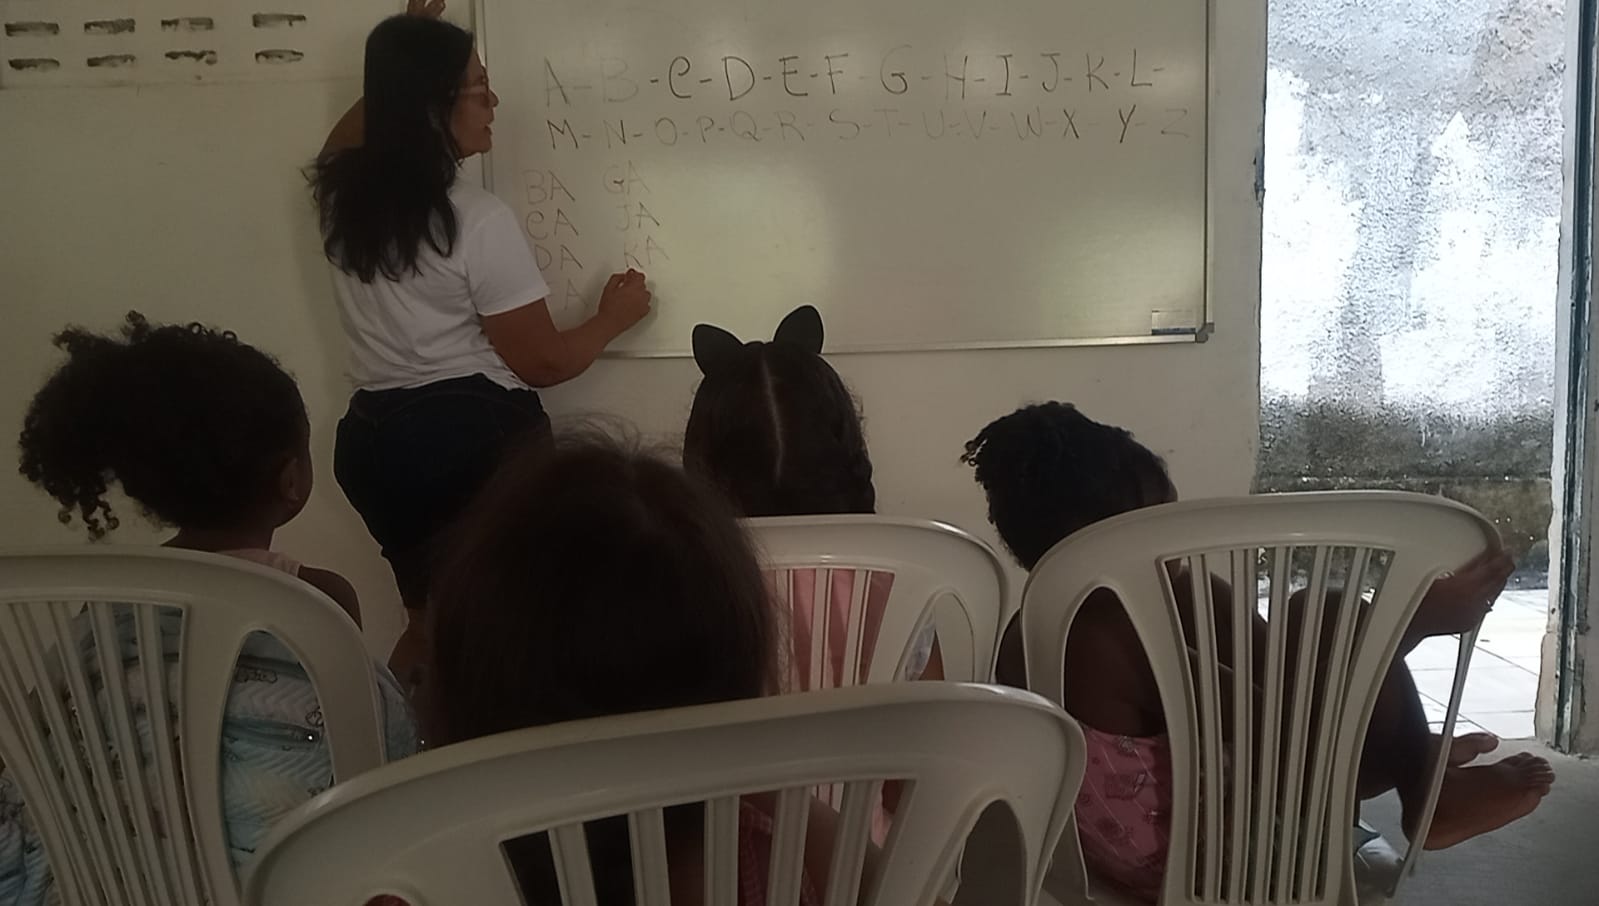 A-B-C-D-E-F-G-H-I-J-K-L-
M-N-O-P-Q-R-S-T-U-V-W-X-Y-Z
BA GA
CA JA
DA KA